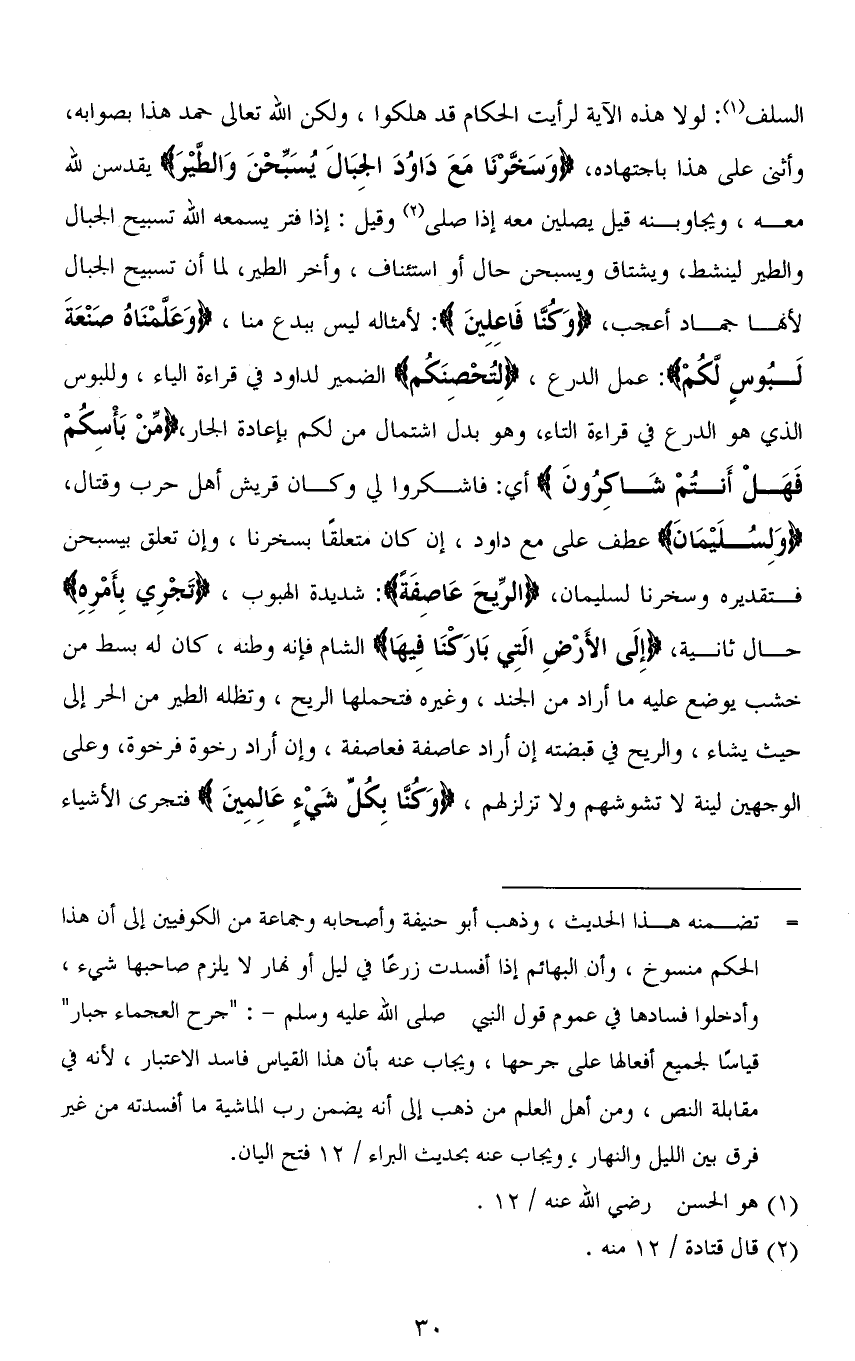 السلف(١): لولا هذه الآية لرأيت الحكام قد هلكوا ، ولكن الله تعالى حمد هذا بصوابه،
وأثنى على هذا باجتهاده، ﴿وَسَخَّرْنَا مَعَ دَاوُدَ الجِبَالَ يُسَبِّحْنَ وَالطَّيْرَ﴾ يقدسن لله
معه ، ويجاوبنه قيل يصلين معه إذا صلى(٢) وقيل : إذا فتر يسمعه الله تسبيح الجبال
والطير لينشط، ويشتاق ويسبحن حال أو استئناف ، وأخر الطير، لما أن تسبيح الجبال
لأنها جماد أعجب، ﴿وَكُنَّا فَاعِلِينَ ﴾: لأمثاله ليس ببدع منا ، ﴿وَعَلَّمْنَاهُ صَنْعَةَ
لَبُوسٍ لَّكُمْ﴾: عمل الدرع ، ﴿لِتُحْصِنَكُم﴾ الضمير لداود في قراءة الياء ، وللبوس
الذي هو الدرع في قراءة التاء، وهو بدل اشتمال من لكم بإعادة الجار،﴿مِّنْ بَأْسِكُمْ
فَهَلْ أَنتُمْ شَاكِرُونَ ﴾ أي: فاشكروا لي وكان قريش أهل حرب وقتال،
﴿وَلِسُلَيْمَانَ﴾ عطف على مع داود ، إن كان متعلقًا بسخرنا ، وإن تعلق بيسبحن
فتقديره وسخرنا لسليمان، ﴿الرِّيحَ عَاصِفَةً﴾: شديدة الهبوب ، ﴿تَجْرِي بِأَمْرِهِ﴾
حال ثانية، ﴿إِلَى الأَرْضِ الَتِي بَارَكْنَا فِيهَا﴾ الشام فإنه وطنه ، كان له بسط من
خشب يوضع عليه ما أراد من الجند ، وغيره فتحملها الريح ، وتظله الطير من الحر إلى
حيث يشاء ، والريح في قبضته إن أراد عاصفة فعاصفة ، وإن أراد رخوة فرخوة، وعلى
الوجهين لينة لا تشوشهم ولا تزلزلهم ، ﴿وَكُنَّا بِكُلِّ شَيْءٍ عَالِمِينَ ﴾ فتجرى الأشياء
= تضمنه هذا الحديث ، وذهب أبو حنيفة وأصحابه وجماعة من الكوفيين إلى أن هذا
الحكم منسوخ ، وأن البهائم إذا أفسدت زرعًا في ليل أو نهار لا يلزم صاحبها شيء ،
وأدخلوا فسادها في عموم قول النبي صلى الله عليه وسلم - : "جرح العجماء جبار"
قياسًا لجميع أفعالها على جرحها ، ويجاب عنه بأن هذا القياس فاسد الاعتبار ، لأنه في
مقابلة النص ، ومن أهل العلم من ذهب إلى أنه يضمن رب الماشية ما أفسدته من غير
فرق بين الليل والنهار ، ويجاب عنه بحديث البراء / ١٢ فتح اليان.
(١) هو الحسن رضي الله عنه / ١٢ .
(٢) قال قتادة / ١٢ منه .
٣٠